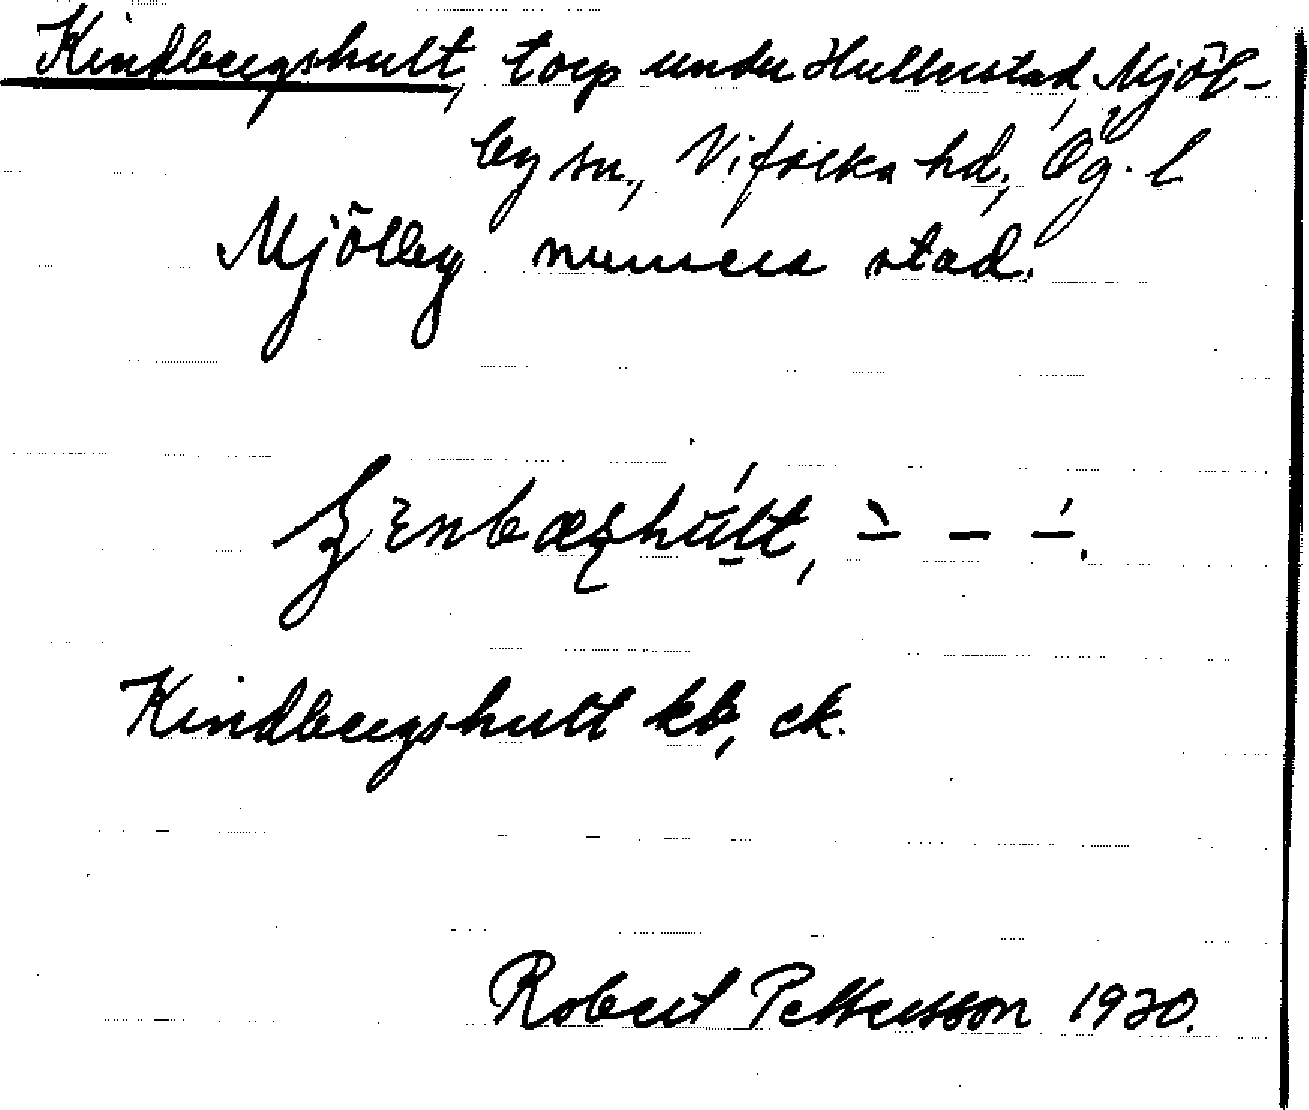 Kindbergshult, torp under Hulterstad, Mjöl-
by sn., Vifolka hd., Ög. l
Mjölby numera stad.
Kindbergshult kb, ek.
Robert Pettersson 1920.